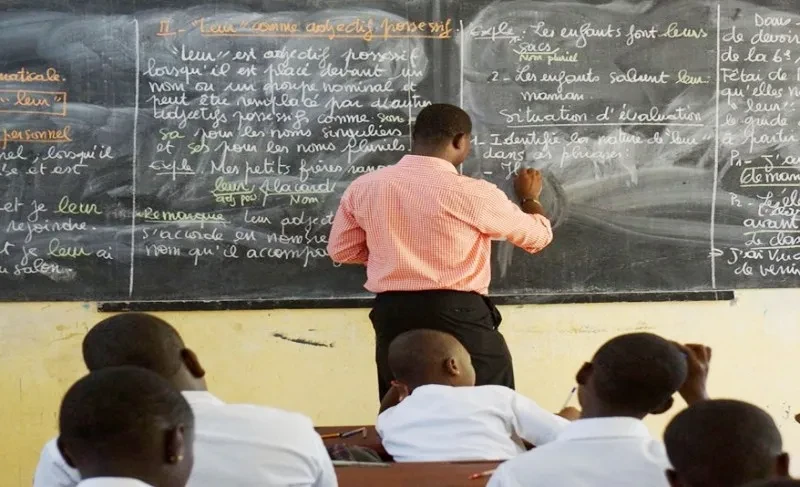 maticale.
"leur"
personnel
nel, lorsqu'il
e et est
et je leur
rejoindre.
t je leur ai
u salon.
II - "Leur" comme adjectif possessif.
"Leur" est adjectif possessif
lorsqu'il est placé devant un
nom ou un groupe nominal et
peut être remplacé par d'autres
adjectifs possessifs comme son
sa pour les noms singuliers
et ses pour les noms pluriels.
Exple: Mes petits frères
leur placard
adj pos Nom
Remarque: Leur adjectif
s'accorde en nombre
nom qu'il accompa
Exple: Les enfants font leurs
sacs
Nom pluriel
2 - Les enfants saluent leur
maman
Situation d'évaluation
1 - Identifie la nature de "leur"
dans les phrases.
Dans
de devoir
de la 6e
l'état de
qu'elles
"leur"
le guide
à parti
P1 - J'a
deman
P2 -
avant
Le clas
J'ai vu
de venir